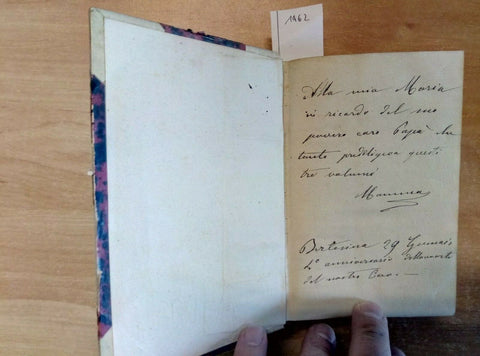 1962
Alla mia Maria
in ricordo del suo
povero caro Papà che
tanto prediligeva questi
tre volumi
Mamma
Bertesina 29 Gennaio
2° anniversario della morte
del nostro Caro.